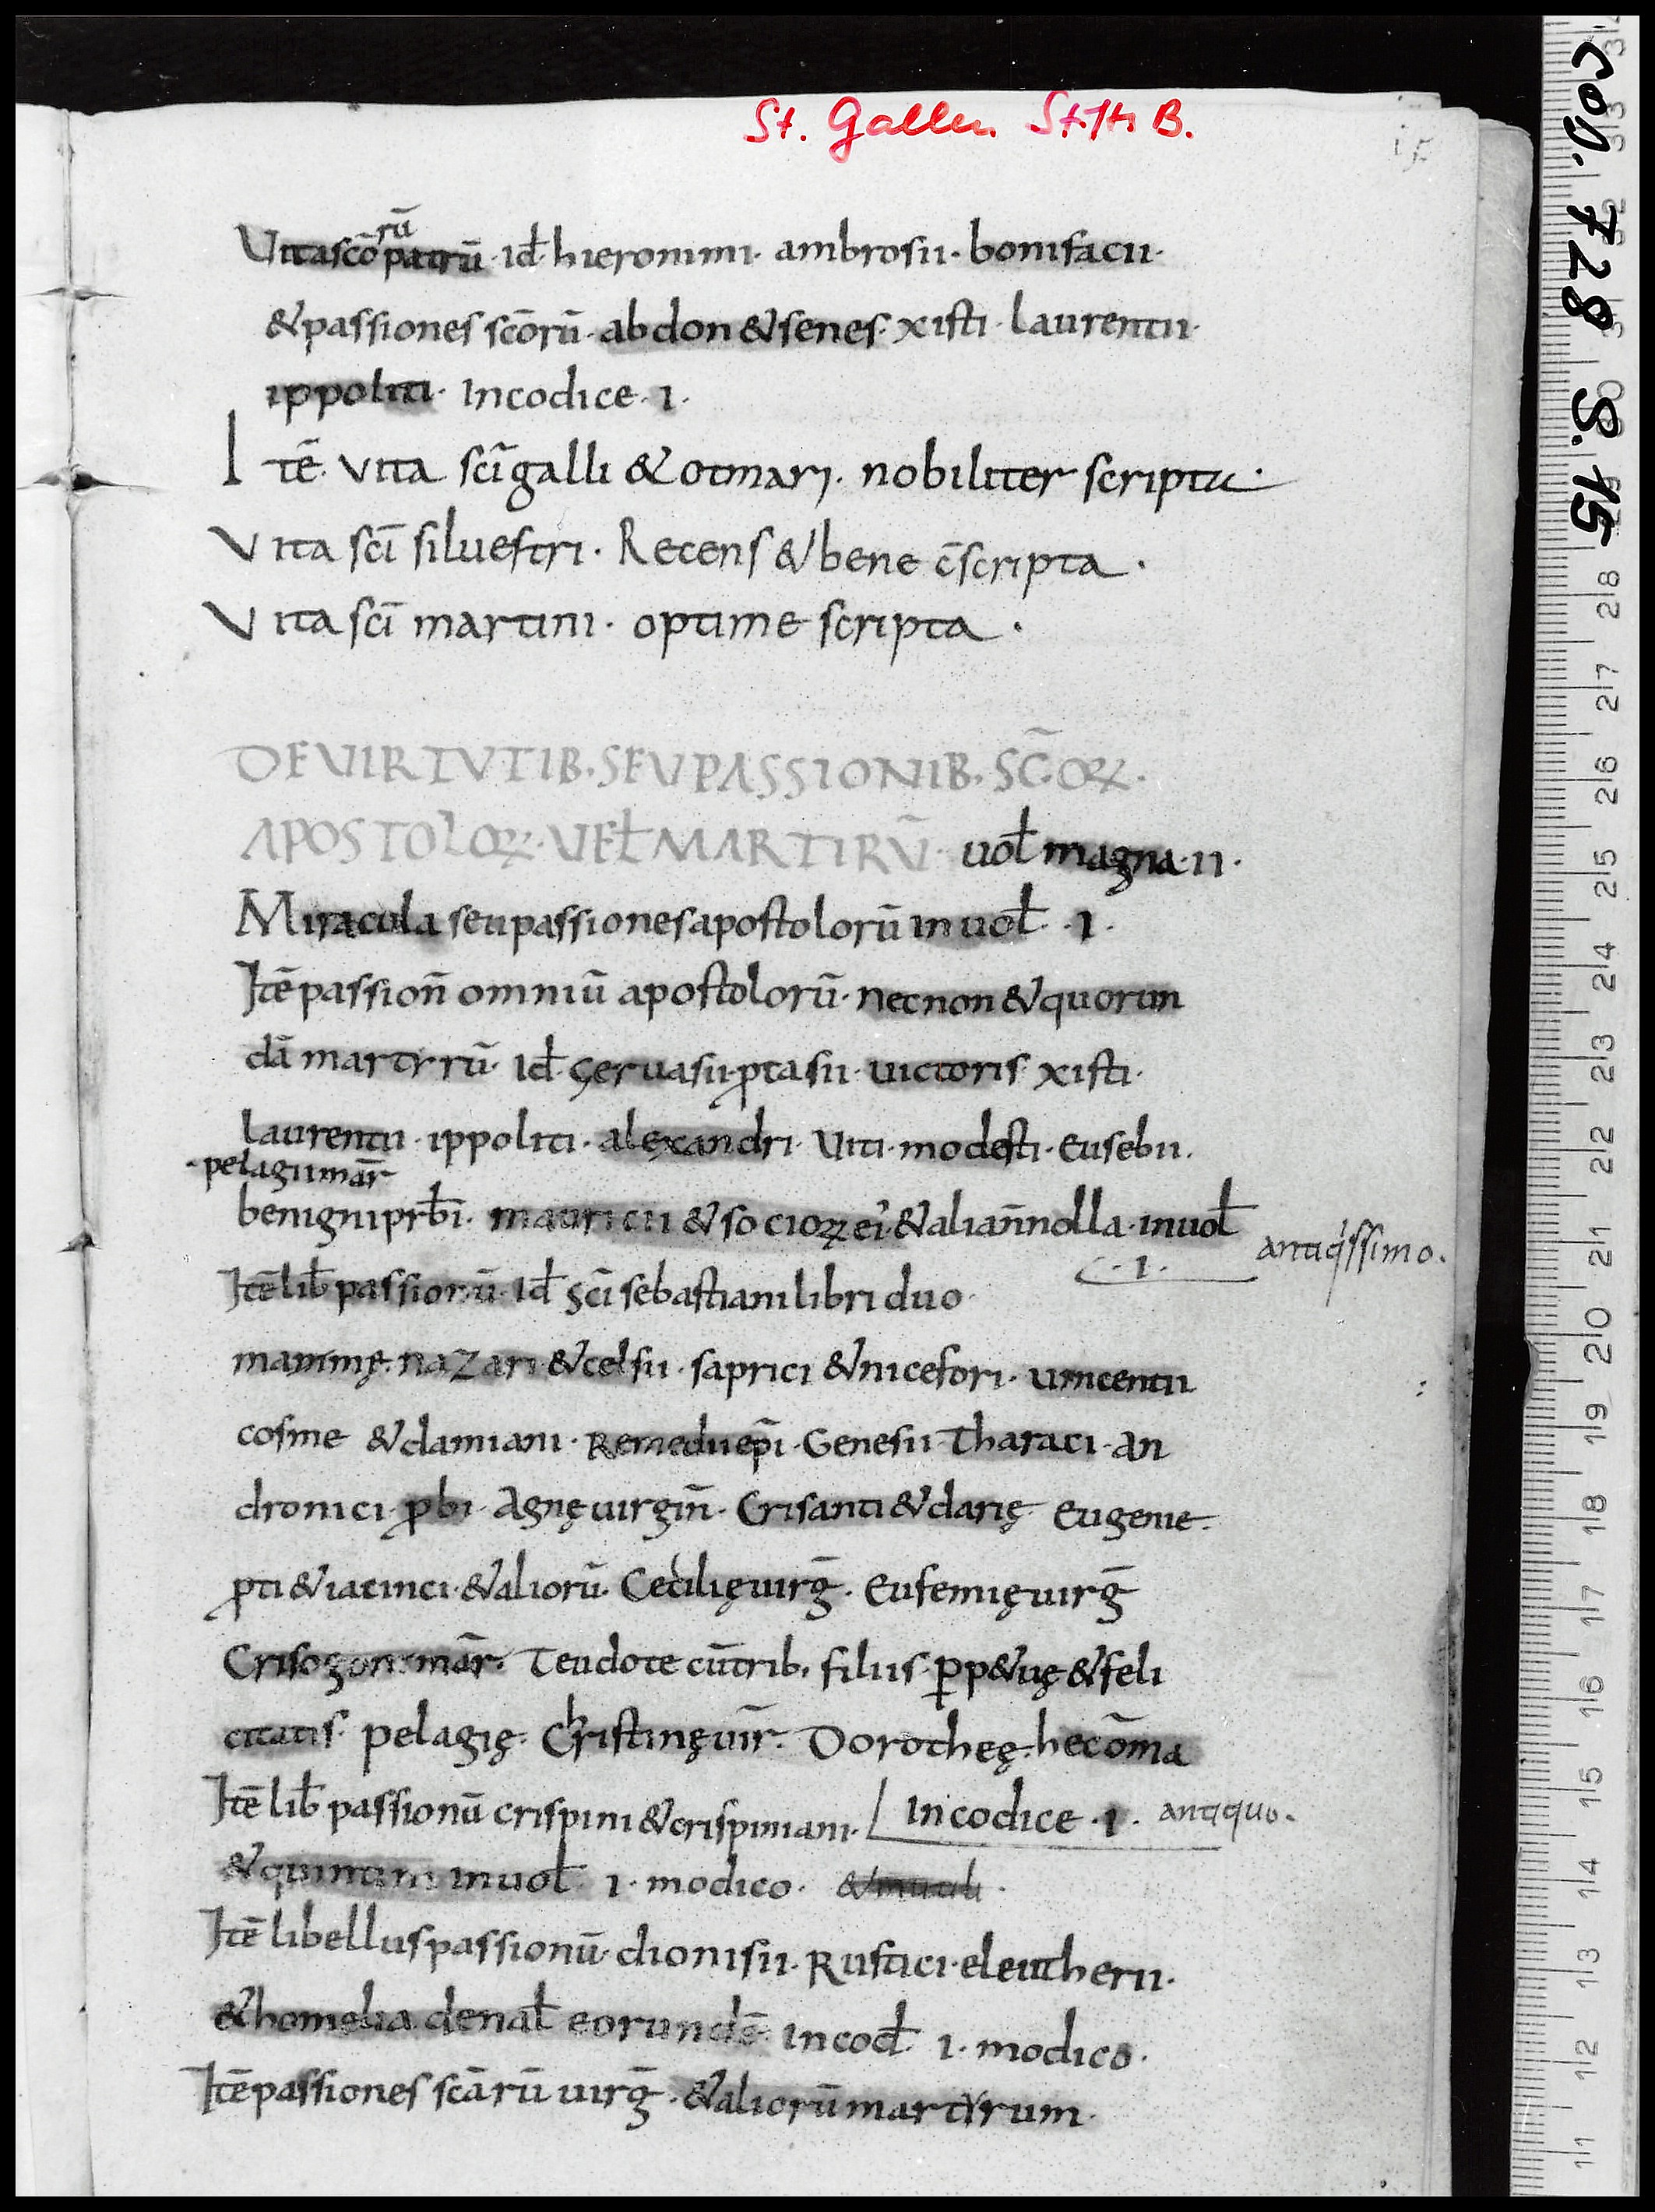 St. Gallen StiftsB.
COD. 728 S. 15
15
Vita scō rū patrū · id̄ · hieronimi · ambrosii · bonifacii ·
& passiones scōrū · abdon & senes · xisti · laurentii ·
ippoliti · In codice · i ·
Itē · vita sc̄i galli & otmari · nobiliter scripta ·
Vita sc̄i siluestri · Recens & bene c̄scripta ·
Vita sc̄i martini · optime scripta ·
DE VIRTVTIB · SEV PASSIONIB · SC̄OꝜ ·
APOSTOLOꝜ · VEŁ MARTIRŪ · uoł magna · ii ·
Miracula seu passiones apostolorū in uoł · i ·
Itē passion̄ omniū apostolorū · necnon & quorun
dā martyrū · id̄ · geruasii · ꝓtasii · uictoris · xisti ·
laurentii · ippoliti · alexandri · Uiti · modesti · Eusebii ·
· pelagii mar̄
benigni prb̄i · mauricii & socioꝝ ei' · & alian̄nolla · in uoł
· i · antiq'ssimo ·
Itē lib̄ passionū · Id̄ sc̄i sebastiani libri duo ·
mammę · nazari & celsii · saprici & nicefori · uincentii
cosme & damiani · Remedii ep̄i · Genesii · Tharaci · an
dronici · ꝓbi · Agnę uirgin̄ · Crisanti & darię · Eugenie ·
ꝓti & iacinci · & aliorū · Cecilię uirḡ · Eufemię uirḡ
Crisogoni mar̄ · Teudote cū trib · filiis · ꝑp&uę & feli
citatis · pelagię · Christinę uir̄ · Dorotheę · hec ōma
Itē lib̄ passionū crispini & crispiniani · In codice · i · antiquo ·
& quintini in uoł i · modico ·
Itē libellus passionū · dionisii · Rustici · eleutherii ·
& homelia de nał eorundē · in cod̄ i · modico ·
Itē passiones scārū uirḡ · & aliorū martyrum ·